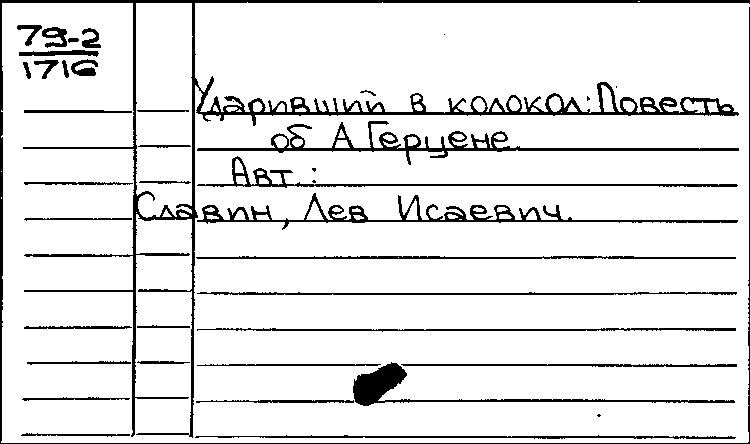 79-2
1716
Ударивший в колокол: Повесть
об А Герцене.
Авт.:
Славин, Лев Исаевич.